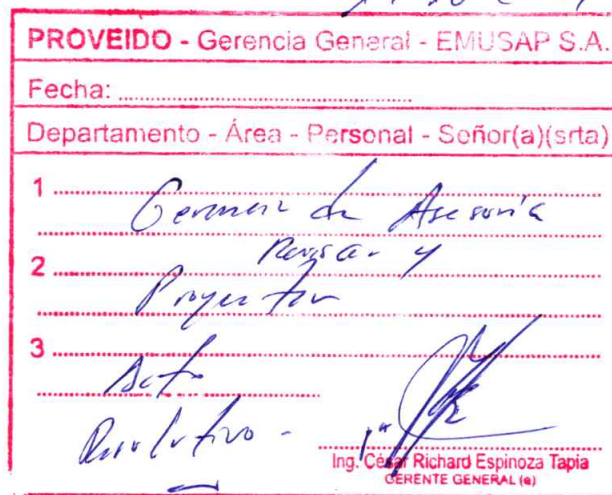 PROVEIDO - Gerencia General - EMUSAP S.A.
Fecha:
Departamento - Área - Personal - Señor(a)(srta)
1
Gerencia de Asesoría
Revisar y
2
Proyectar
3
Acto
Resolutivo -
Ing. César Richard Espinoza Tapia
GERENTE GENERAL (e)